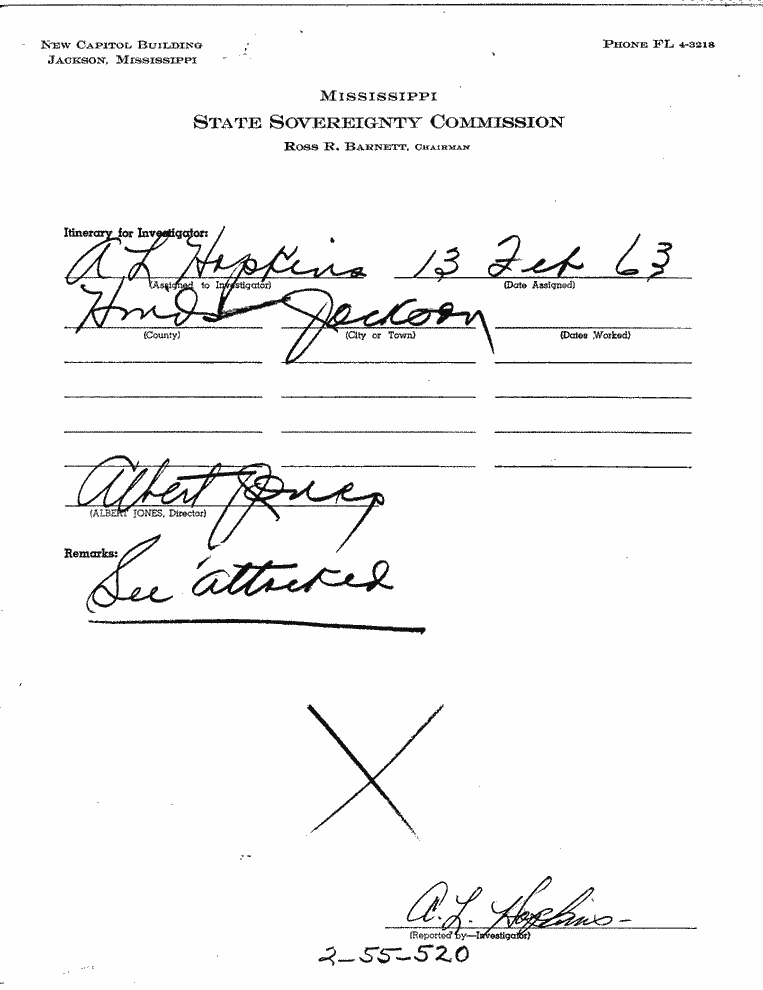 NEW CAPITOL BUILDING
JACKSON, MISSISSIPPI
PHONE FL 4-3218
MISSISSIPPI
STATE SOVEREIGNTY COMMISSION
ROSS R. BARNETT, CHAIRMAN
Itinerary for Investigator:
A L Hopkins 13 Feb 63
(Assigned to Investigator) (Date Assigned)
Hinds Jackson
(County) (City or Town) (Dates Worked)
Albert Jones
(ALBERT JONES, Director)
Remarks:
See attached
A. L. Hopkins
(Reported by—Investigator)
2-55-520